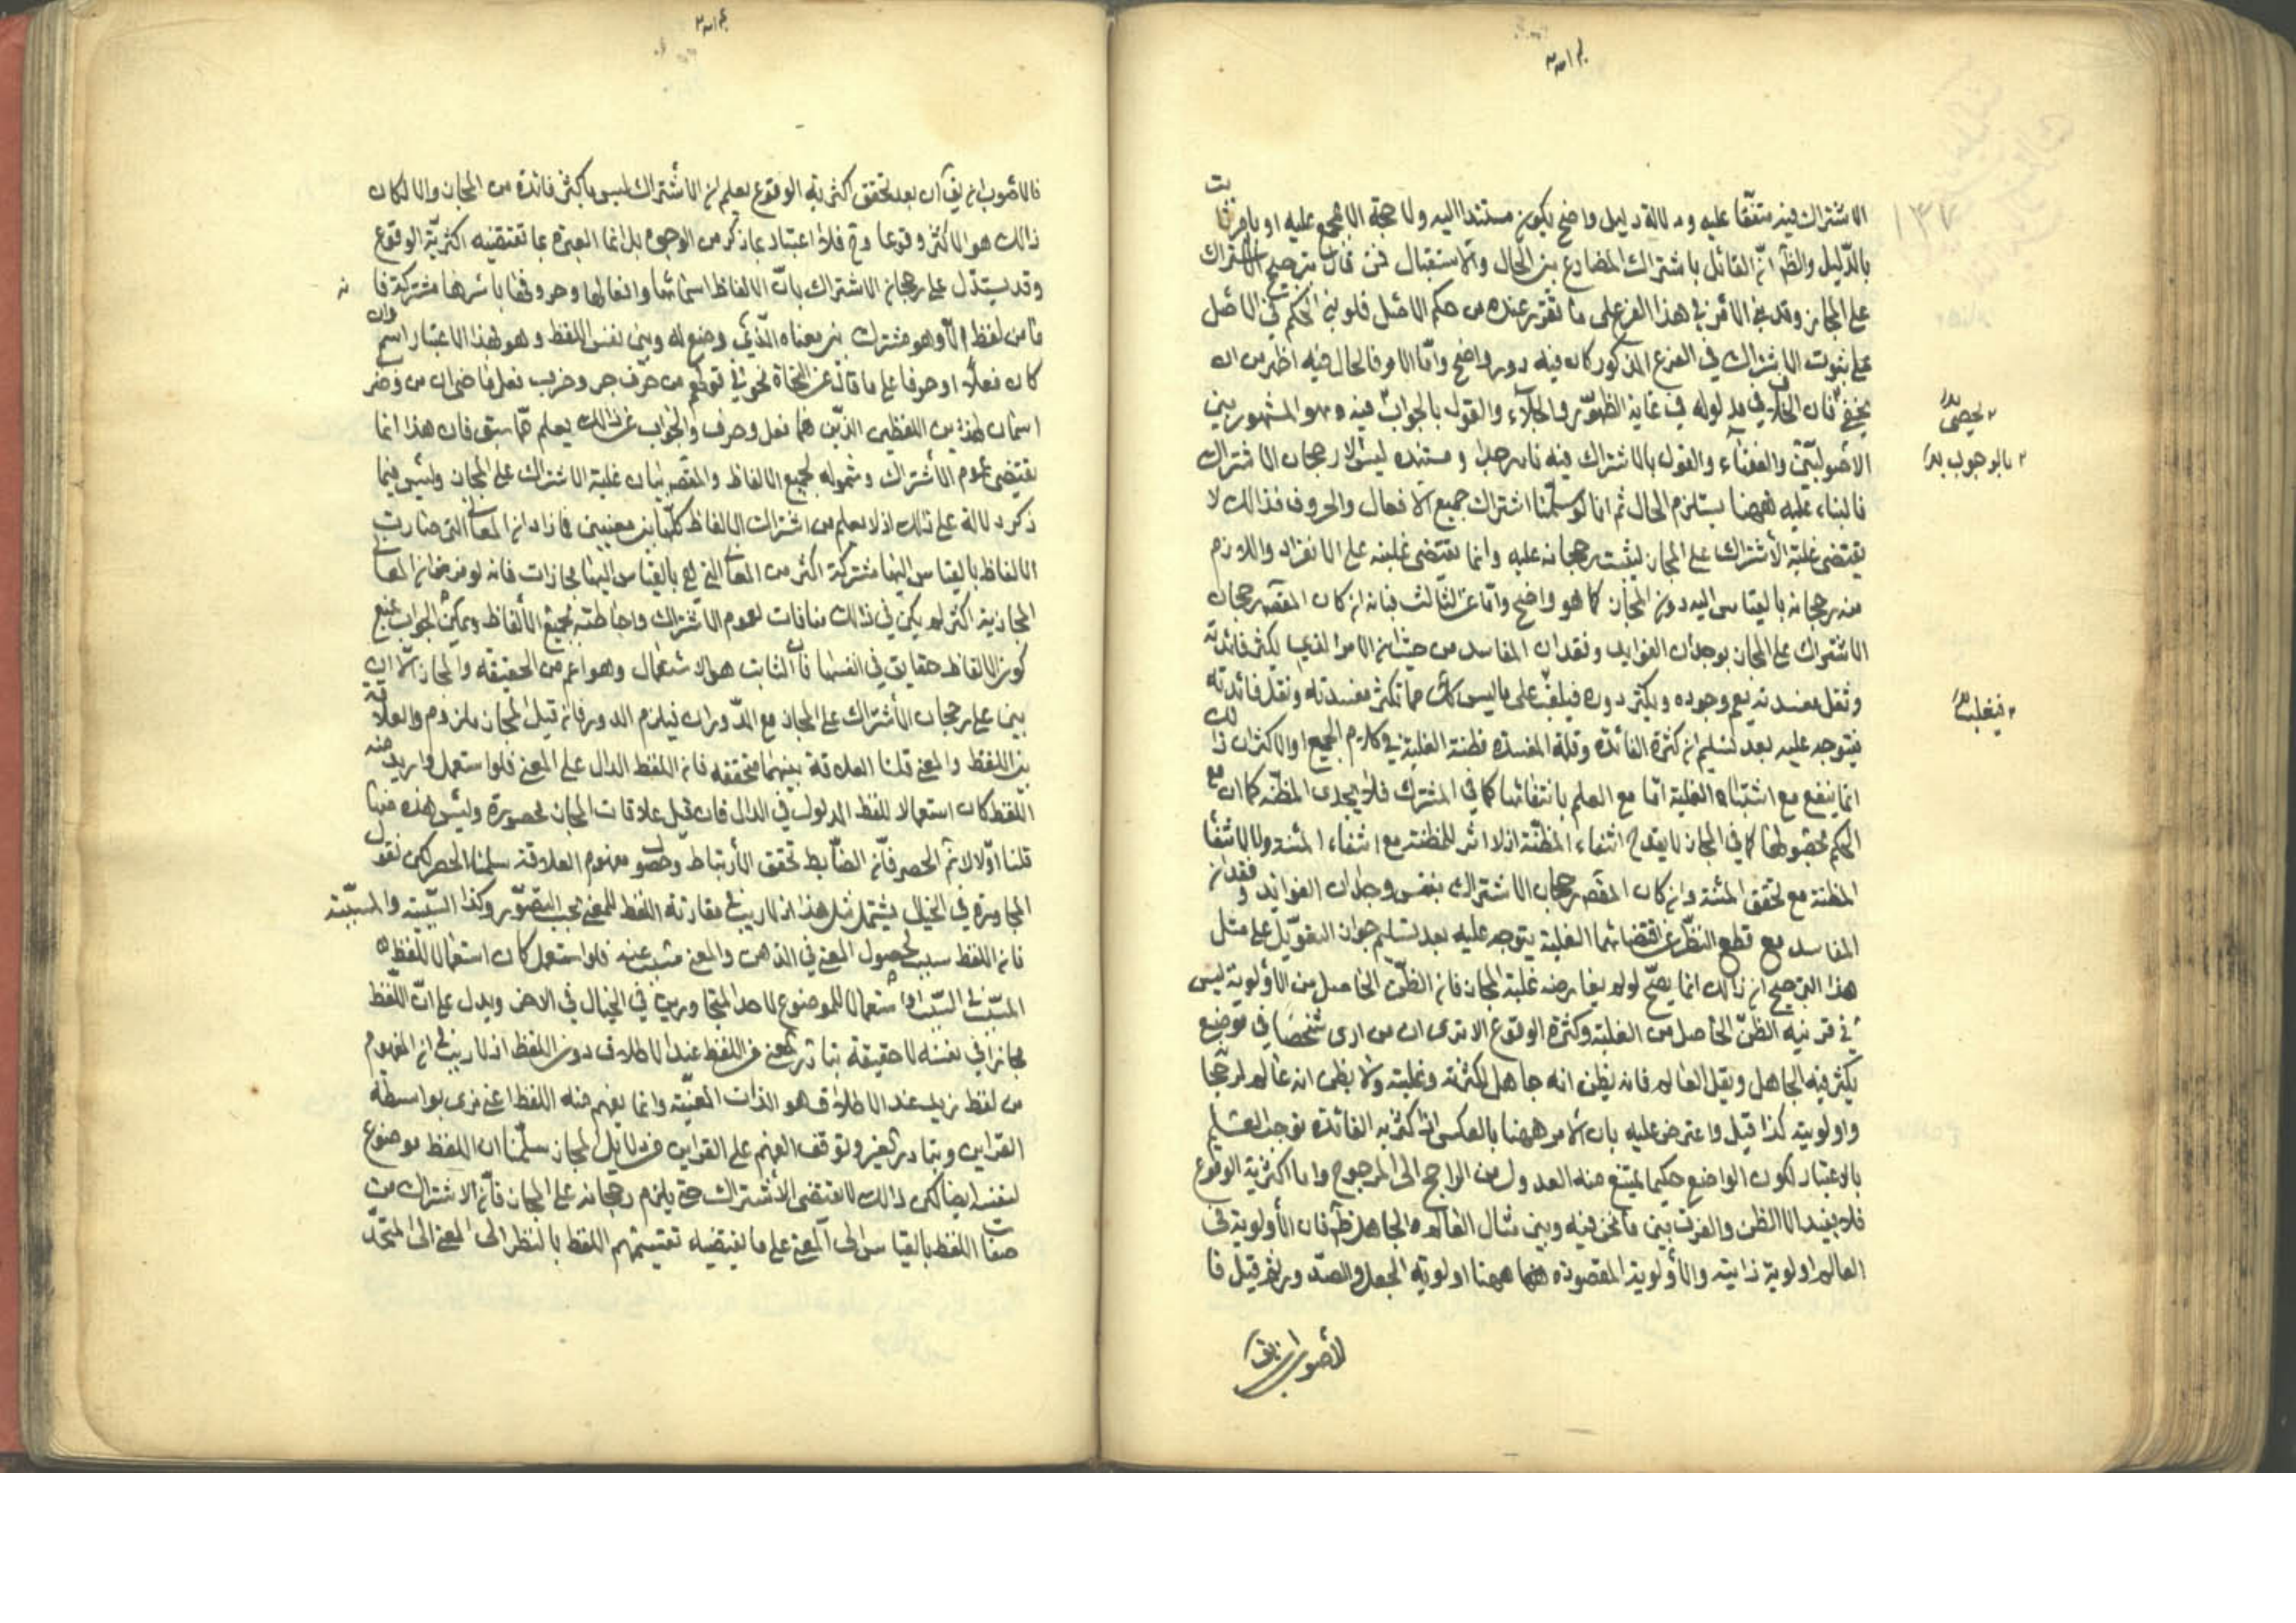 الاشتراك فيه متفقا عليه ودلالة دليل واضح يكون مستندا اليه ولا حجة الا مجمع عليه او باقرنات
بالدليل والظ ان القائل باشتراك المضارع بين الحال والاستقبال ممن قال بترجيح الاشتراك
على المجاز وقد بنى الامر في هذا الفرع على ما تقرر عنده من حكم الاصل فلو بنى الحكم في الاصل
على ثبوت الاشتراك في الفرع المذكور كان فيه دور واضح واما الامر فالحال فيه اظهر من ان
يخفى فان الخلاف في مدلوله في غاية الظهور والجلاء والقول بالجواب فيه وهو المشهور بين
الاصوليين والفقهاء والقول بالاشتراك فيه نادر جدا ومستنده ليس الا رجحان الاشتراك
فالبناء عليه ههنا يستلزم المحال ثم انا لو سلمنا اشتراك جميع الافعال والحروف فذالك لا
يقتضى غلبة الاشتراك على المجاز ليثبت رجحانه عليه وانما يقتضى غلبته على الانفراد واللازم
منه رجحانه بالقياس اليه دون المجاز كما هو واضح واما عن الثالث فبانه ان كان المقصود رجحان
الاشتراك على المجاز بوجدان الفوايد وفقدان المفاسد من حيث ان الامر الذي يكثر فائدته
وتقل مفسدته يعم وجوده ويكثر دوره فيغلب على ما ليس كك مما تكثر مفسدته وتقل فائدته
فيتوجه عليه بعد تسليم ان كثرة الفائدة وقلة المفسدة مظنة الغلبة في كلام الجميع او الاكثر ان ذالك
انما ينفع مع اشتباه الغلبة اما مع العلم بانتفائها كما في المشترك فلا يجدى المظنة كما ان مع
الحكم بحصولها كما في المجاز لا يقدح انتفاء المظنة اذ لا اثر للمظنة مع انتفاء المئنة ولا لانتفاء
المظنة مع تحقق المئنة وان كان المقصود رجحان الاشتراك بنفس وجدان الفوائد وفقدان
المفاسد مع قطع النظر عن اقتضائهما الغلبة يتوجه عليه بعد تسليم جواز التعويل على مثل
هذا الترجيح ان ذالك انما يصح لو لم يعارضه غلبة المجاز فان الظن الحاصل من الاولوية ليس
في مرتبة الظن الحاصل من الغلبة وكثرة الوقوع الا ترى ان من ارى شخصا في موضع
يكثر فيه الجاهل ويقل العالم فانه يظن انه جاهل لكثرته وغلبته ولا يظن انه عالم لرجحا
واولويته كذا قيل واعترض عليه بان الامر ههنا بالعكس اذ اكثرية الفائدة توجب العلم
بالاعتبار لكون الواضع حكيما يمتنع منه العدول من الراجح الى المرجوح واما اكثرية الوقوع
فلا يفيد الا الظن والفرق بين ما نحن فيه وبين مثال العالم والجاهل ظ فان الاولوية في
العالم اولوية ذاتية والاولوية المقصودة ههنا اولوية الجعل والصد ور فان قيل فا
لاصوب ان يق
لا يحصى
بالوجوب
فيغلب
فالاصوب ان يق ان بعد تحقق اكثرية الوقوع يعلم ان الاشتراك ليس باكثر فائدة من المجاز والا لكان
ذالك هو الاكثر وقوعا وح فلا اعتبار بما ذكر من الوجوه بل انما العبرة بما تقتضيه اكثرية الوقوع
وقد يستدل على رجحان الاشتراك بان الالفاظ اسمائها وافعالها وحروفها باسرها مشتركة فا
ما من لفظ الا وهو مشترك بين معناه الذي وضع له وبين نفس اللفظ وهو بهذا الاعتبار اسم وان
كان فعلا او حرفا على ما قال عن النحاة نحو في قولهم من حرف جر وضرب فعل ماض ان من وضر
اسمان لهذين اللفظين الذين هما فعل وحرف والجواب عن ذالك يعلم مما سبق فان هذا انما
يقتضى عموم الاشتراك وشموله لجميع الالفاظ والمقصود بيان غلبة الاشتراك على المجاز وليس فيما
ذكر دلالة على ذلك اذ لا يعلم من اشتراك الالفاظ كلها بين معنيين فما زاد ان المعاني التي صارت
الالفاظ بالقياس اليها مشتركة اكثر من المعاني التي هي بالقياس اليها مجازات فانه لو فرض ان المعاني
المجازية اكثر لم يكن في ذلك منافات لعموم الاشتراك واحاطته بجميع الالفاظ ويمكن الجواب بمنع
كون الالفاظ حقايق في انفسها فان الثابت هو الاستعمال وهو اعم من الحقيقة والمجاز الا ان
يبنى على رجحان الاشتراك على المجاز مع الدوران فيلزم الدور فان قيل المجاز ملزوم والعلاقة
بين اللفظ والمعنى قلنا العلاقة بينهما متحققة فان اللفظ الدال على المعنى فلو استعمل واريد منه
اللفظ كان استعمالا للفظ المدلول في الدال فان قيل علاقات المجاز محصورة وليس هذه منها
قلنا اولا لا نم الحصر فان الضابط تحقق الارتباط وحصول مفهوم العلاقة سلمنا الحصر لكن نقول
المجاورة في الخيال يشتمل مثل هذا اذ لا ريب في مقارنة اللفظ للمعنى بحسب التصور وكذا السببية والمسببية
فان اللفظ سبب لحصول المعنى في الذهن والمعنى مسبب عنه فلو استعمل كان استعمالا للفظ
المسبب في السبب او استعمالا للموضوع لاحد المتجاورين في الخيال في الاخر ويدل على ان اللفظ
مجاز في نفسه لا حقيقة تبادر المعنى من اللفظ عند الاطلاق دون اللفظ اذ لا ريب في ان المفهوم
من لفظ زيد عند الاطلاق هو الذات المعينة وانما يفهم منه اللفظ اعني زي بواسطة
القراين وتبادر الغير وتوقف الفهم على القراين من دلايل المجاز سلمنا ان اللفظ موضوع
لنفسه ايضا لكن ذالك لا يقتضى الاشتراك حتى يلزم رجحانه على المجاز فان الاشتراك من
صفات اللفظ بالقياس الى المعنى على ما يقتضيه تقسيمهم اللفظ بالنظر الى المعنى الى المتحد